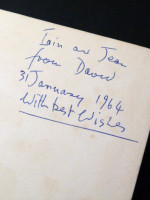 Iain and Jean
from David
31 January 1964
With best Wishes